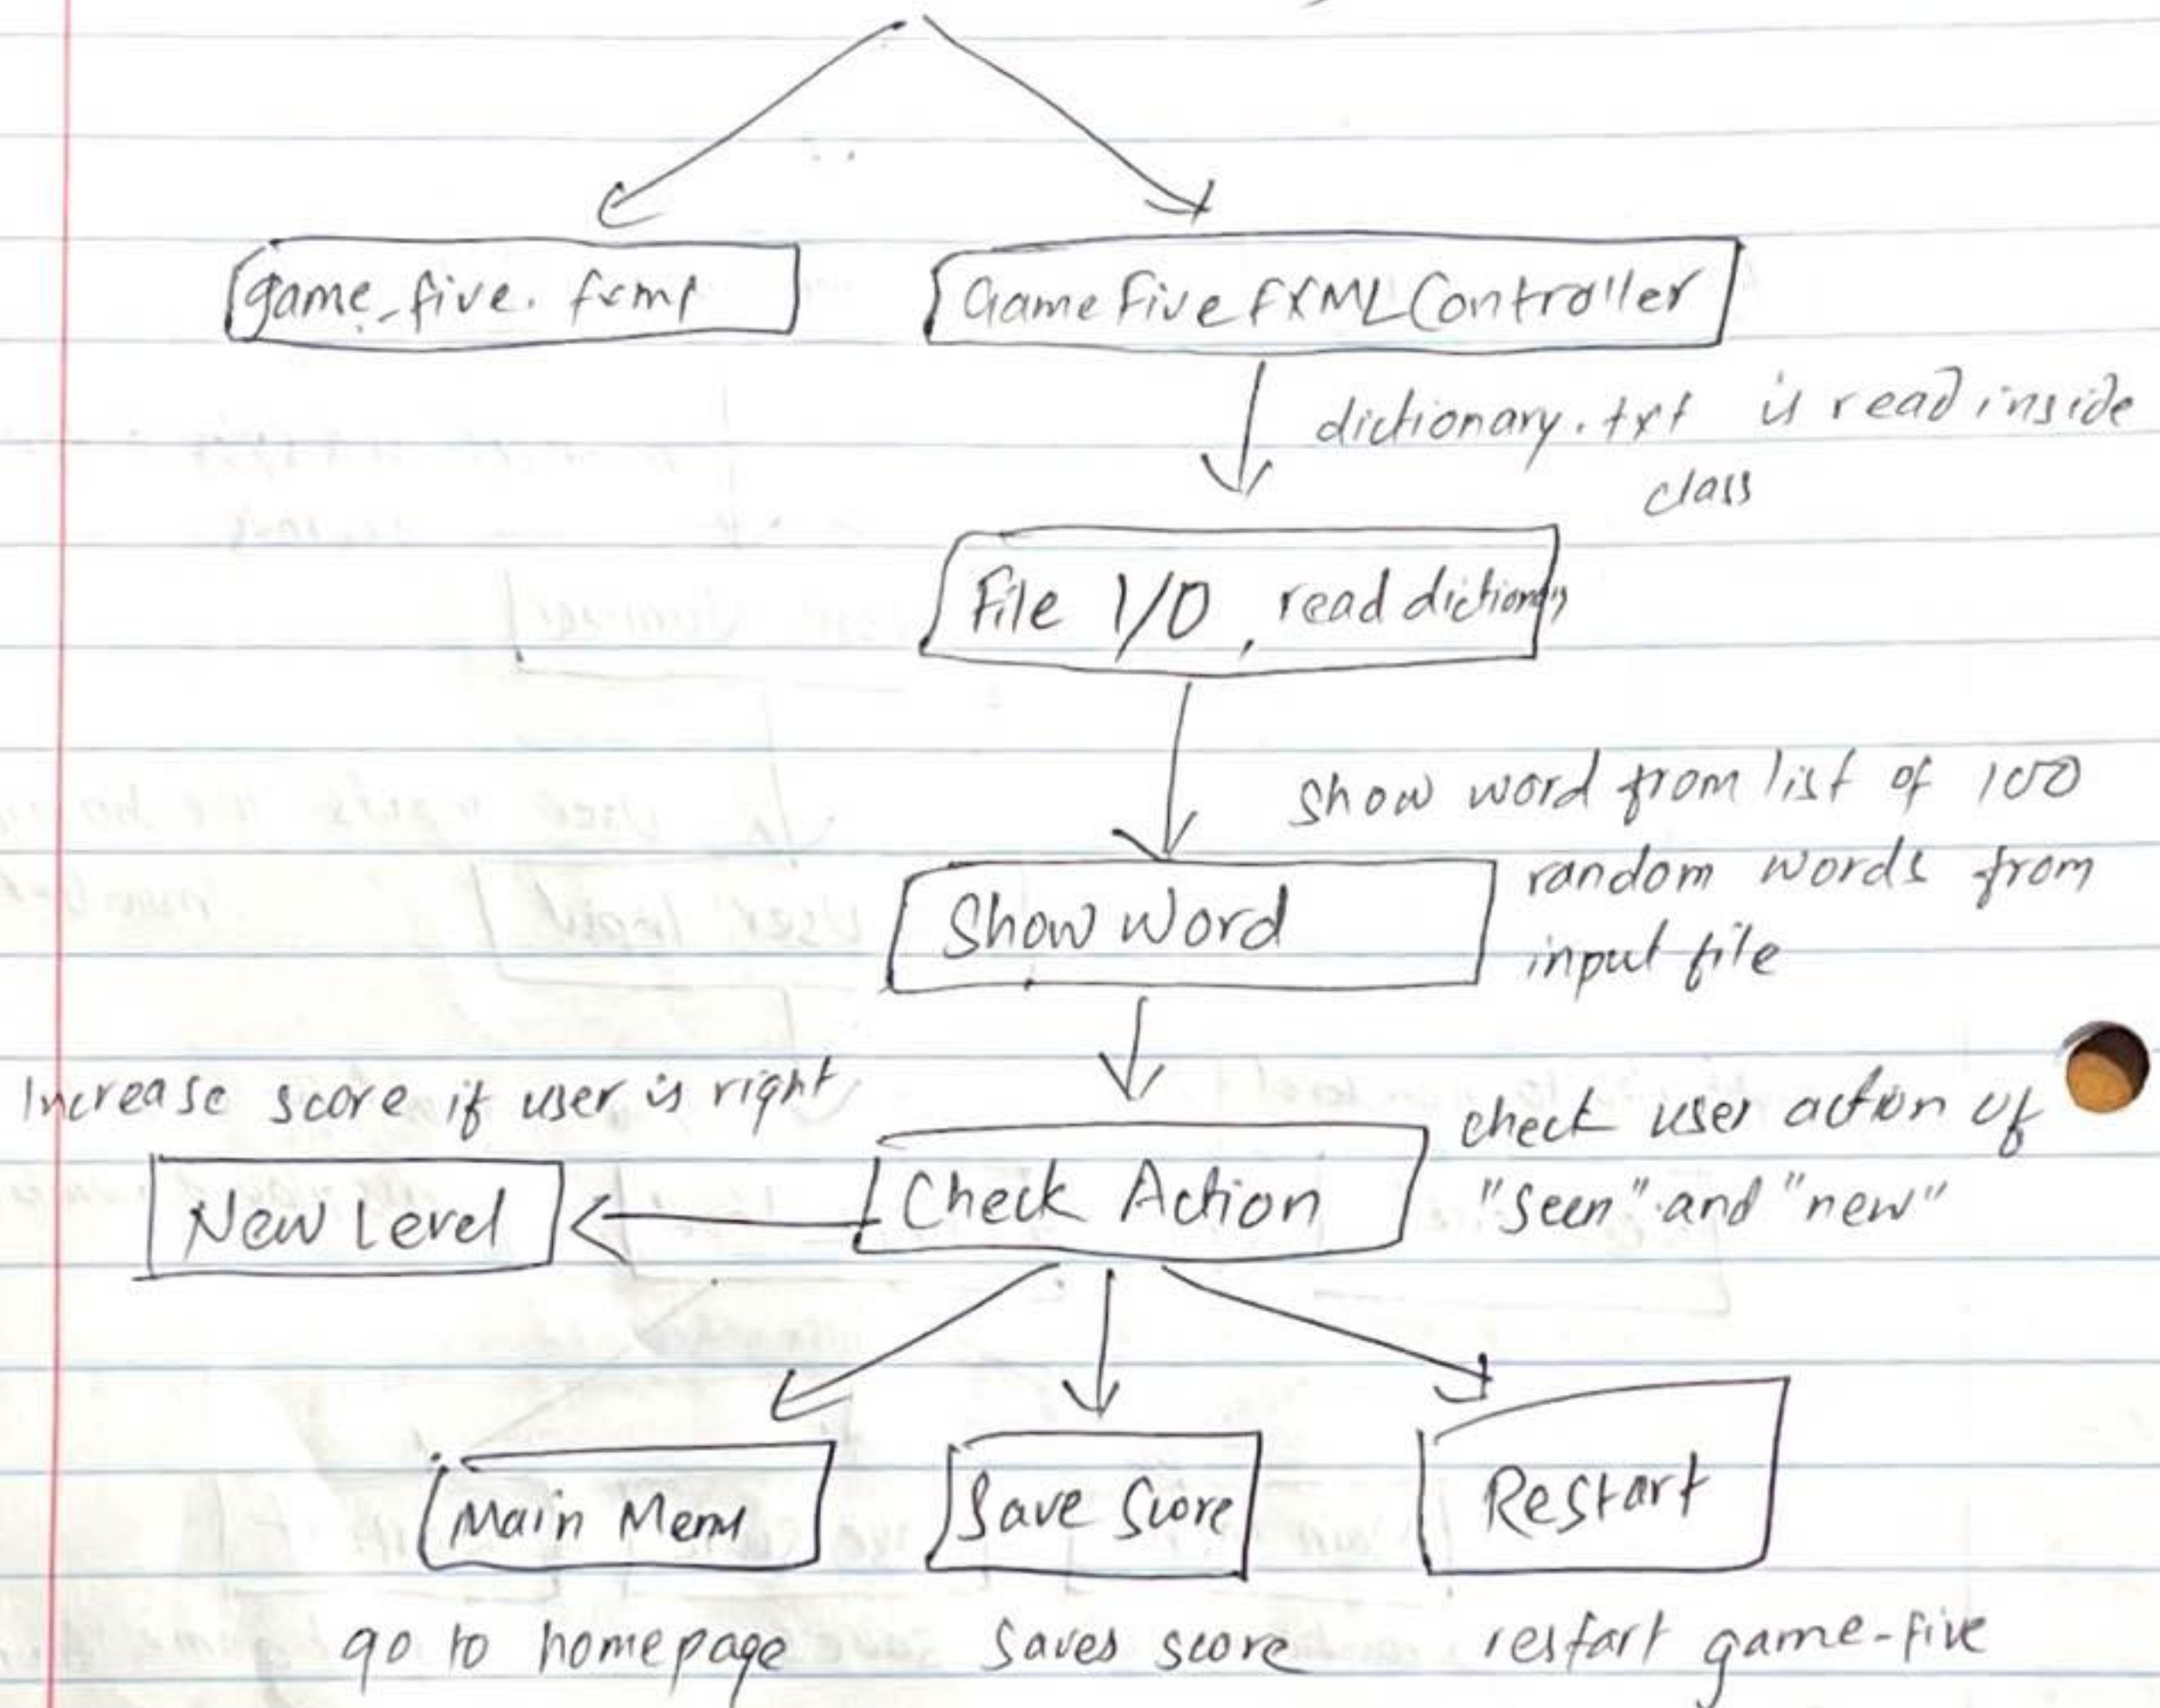 game_five.fxml
GameFiveFXMLController
dictionary.txt is read inside
class
File I/O, read dictionary
show word from list of 100
random words from
input file
Show Word
Increase score if user is right
check user action of
"seen" and "new"
New Level
Check Action
Main Menu
Save Score
Restart
go to homepage
saves score
restart game-five